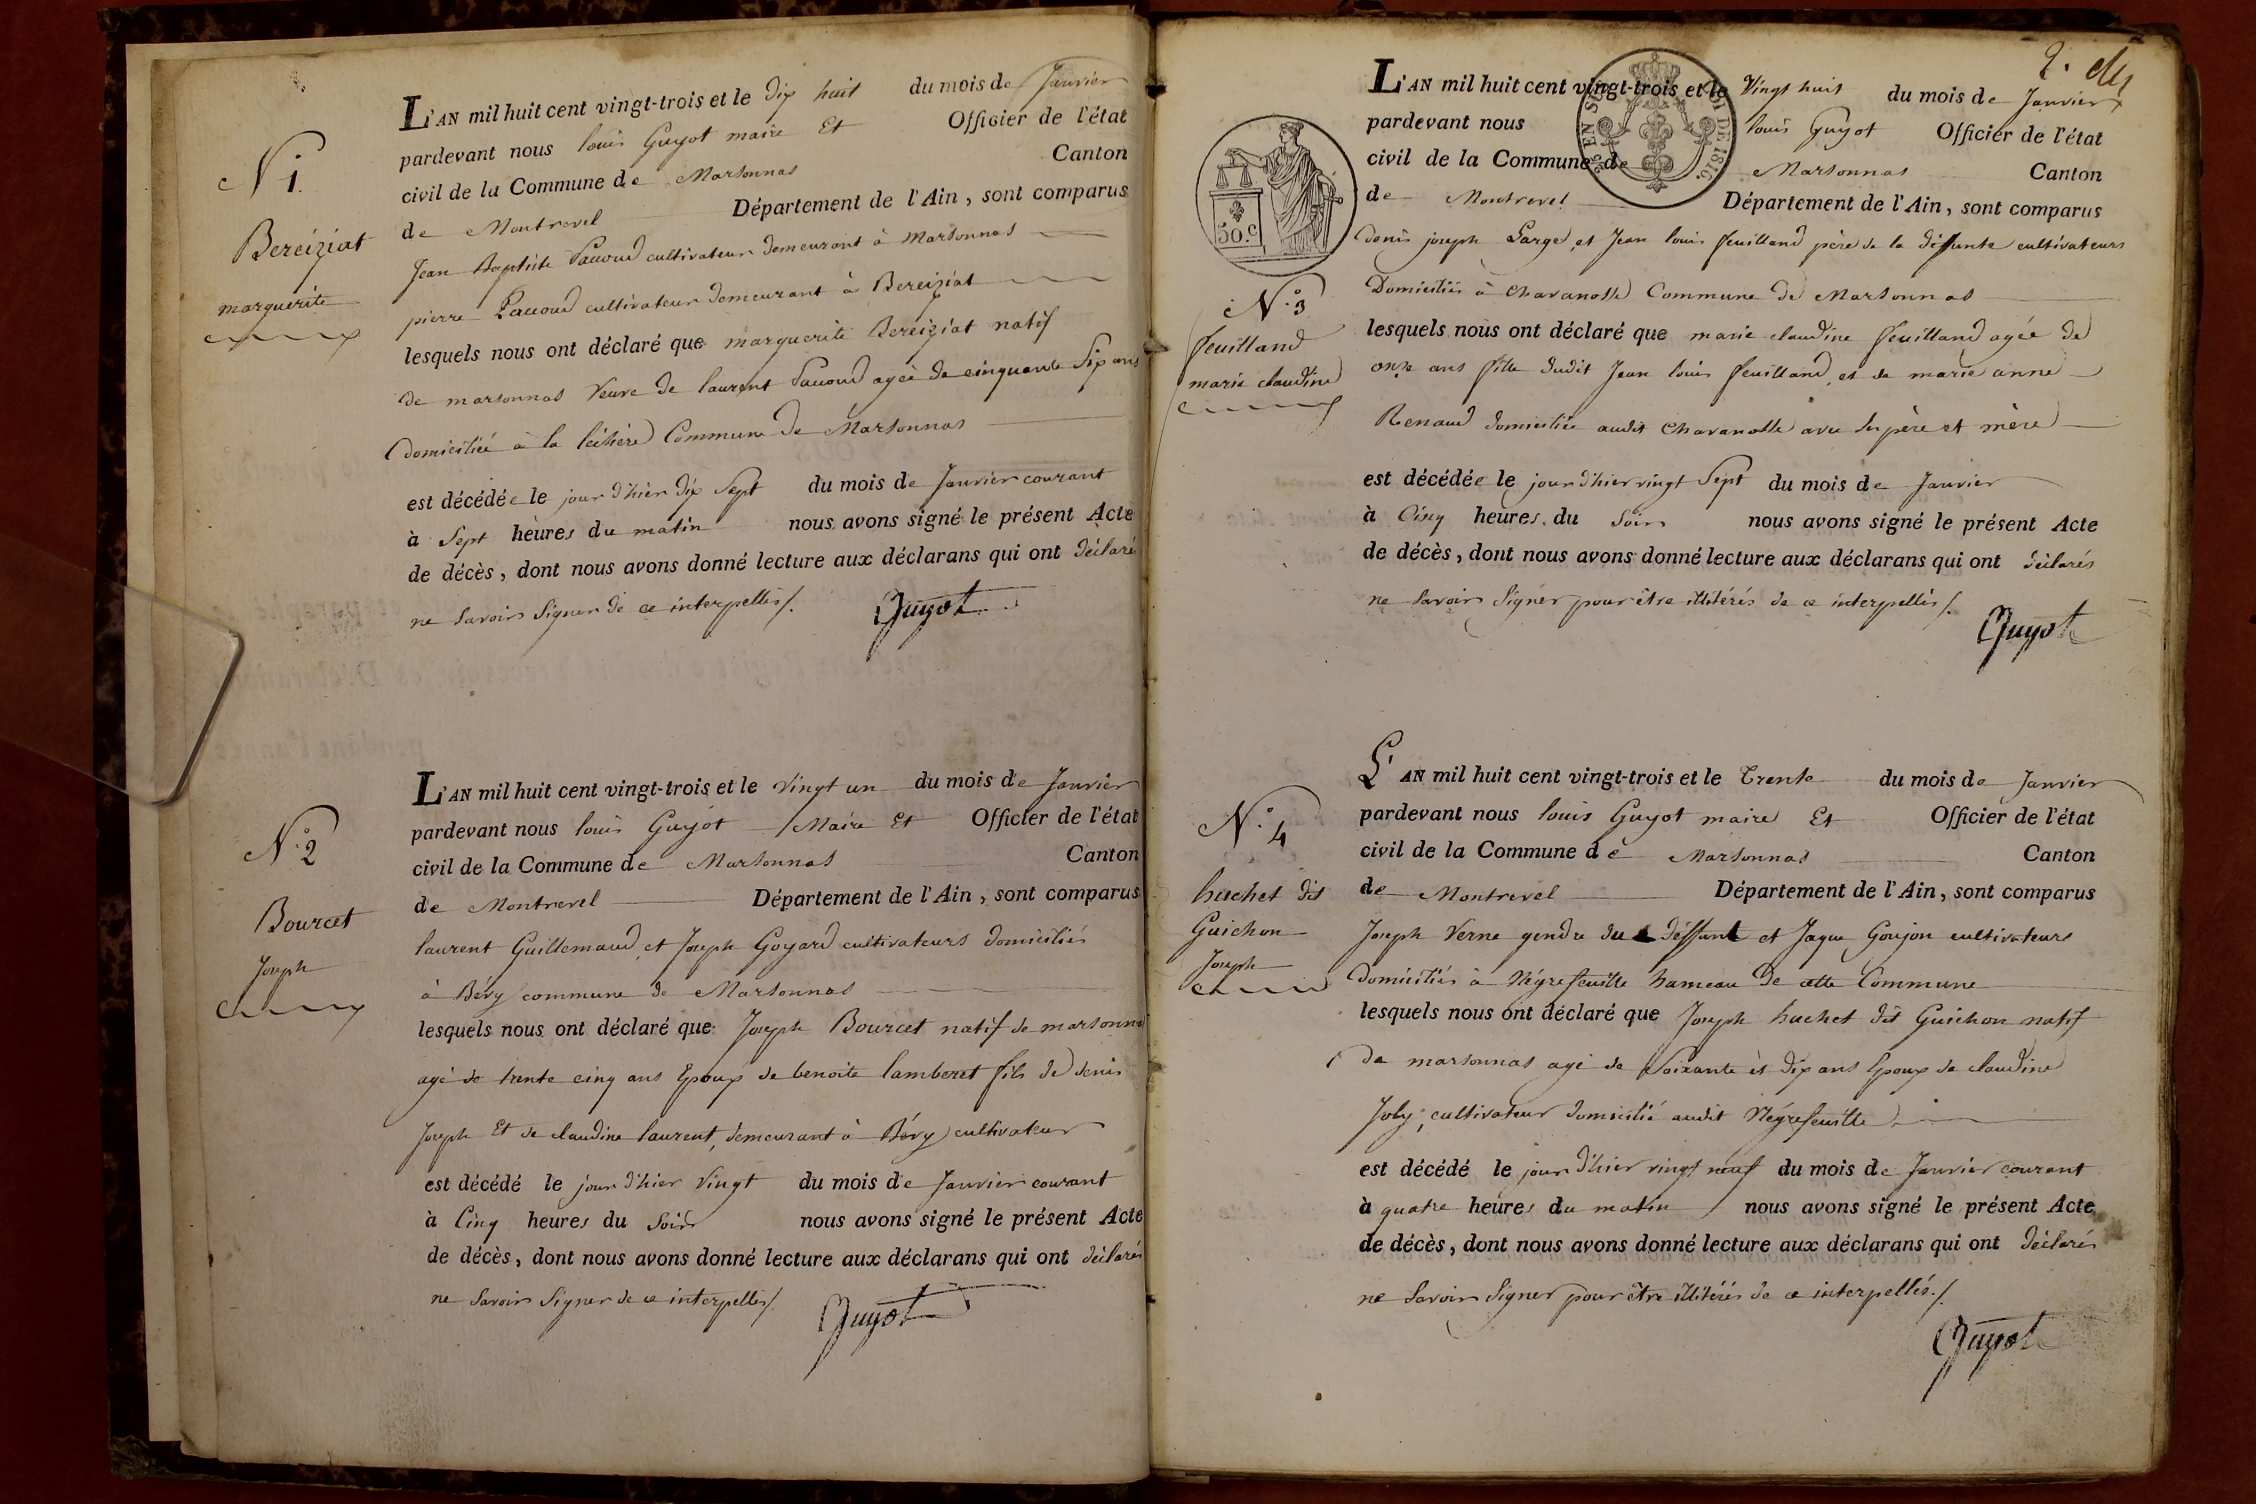 N 1.
Bereiziat
marguerite
L'AN mil huit cent vingt-trois et le dix huit du mois de Janvier
pardevant nous louis Guyot maire Et Officier de l'état
civil de la Commune de Marsonnas Canton
de Montrevel Département de l'Ain, sont comparus
Jean Baptiste Pauoud cultivateur demeurant à Marsonnas
pierre Pauoud cultivateur demeurant à Bereiziat
lesquels nous ont déclaré que marguerite Bereiziat natif
de marsonnas Veuve de laurent Pauoud agée de cinquante Six ans
domiciliée à la Commune de Marsonnas
est décédée le jour d'hier dix Sept du mois de Janvier courant
à Sept heures du matin nous avons signé le présent Acte
de décès, dont nous avons donné lecture aux déclarans qui ont déclaré
ne Savoir Signer de ce interpellés/.
Guyot
N.° 2
Bourcet
Joseph
L'AN mil huit cent vingt-trois et le vingt un du mois de Janvier
pardevant nous louis Guyot Maire Et Officier de l'état
civil de la Commune de Marsonnas Canton
de Montrevel Département de l'Ain, sont comparus
laurent Guillemaud, et Joseph Goyard cultivateurs domiciliés
à Bévy commune de Marsonnas
lesquels nous ont déclaré que Joseph Bourcet natif de marsonna
agé de trente cinq ans Epoux de benoite lamberet fils de denis
Joseph Et de claudine laurent, demeurant à Bévy cultivateur
est décédé le jour d'hier Vingt du mois de Janvier courant
à Cinq heures du Soir nous avons signé le présent Acte
de décès, dont nous avons donné lecture aux déclarans qui ont déclarés
ne Savoir Signer de ce interpellés/.
Guyot
2.
50.C
EN SUS
LOI DE 1816.
N.° 3
feuilland
marie claudine
L'AN mil huit cent vingt-trois et le Vingt huit du mois de Janvier
pardevant nous louis Guyot Officier de l'état
civil de la Commune de Marsonnas Canton
de Montrevel Département de l'Ain, sont comparus
denis joseph Large, et Jean louis feuilland père de la déffunte cultivateurs
Domiciliés à Chavanosse Commune de Marsonnas
lesquels nous ont déclaré que marie claudine feuilland agée de
onze ans fille dudit Jean louis feuilland, et de marie anne
Renaud domiciliée audit Chavanosse avec Ses père et mère
est décédée le jour d'hier vingt Sept du mois de Janvier
à Cinq heures du Soir nous avons signé le présent Acte
de décès, dont nous avons donné lecture aux déclarans qui ont déclarés
ne Savoir Signer pour être illitérés de ce interpellés/.
Guyot
N.° 4
huchet dit
Guichon
Joseph
L'AN mil huit cent vingt-trois et le Trente du mois de Janvier
pardevant nous louis Guyot maire Et Officier de l'état
civil de la Commune de Marsonnas Canton
de Montrevel Département de l'Ain, sont comparus
Joseph Verne gendre du déffunt et Jaque Goujon cultivateurs
domiciliés à Négrefeuille hameau de cette Commune
lesquels nous ont déclaré que Joseph huchet dit Guichon natif
de marsonnas agé de Soixante et dix ans Epoux de claudine
Joly; cultivateur domicilié audit Négrefeuille
est décédé le jour d'hier vingt neuf du mois de Janvier courant
à quatre heures du matin nous avons signé le présent Acte
de décès, dont nous avons donné lecture aux déclarans qui ont déclarés
ne Savoir Signer pour être illitérés de ce interpellés./.
Guyot